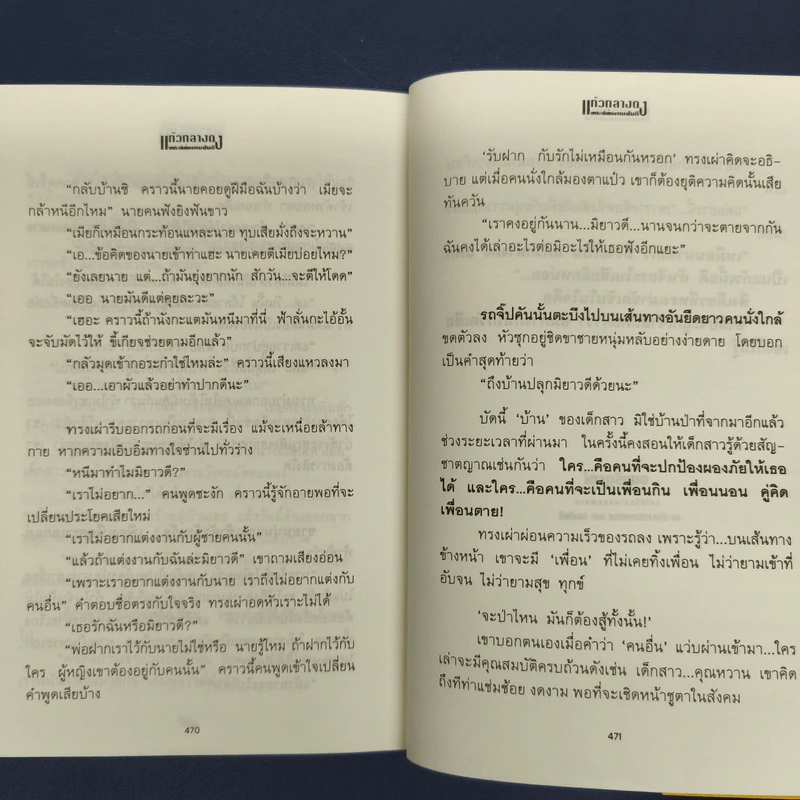 แก้วกลางดง
“กลับบ้านซิ คราวนี้นายคอยดูฝีมือฉันบ้างว่า เมียจะ
กล้าหนีอีกไหม” นายคนฟังยิงฟันขาว
“เมียก็เหมือนกระท้อนแหละนาย ทุบเสียมั่งถึงจะหวาน”
“เอ...ข้อคิดของนายเข้าท่าแฮะ นายเคยตีเมียบ่อยไหม?”
“ยังเลยนาย แต่...ถ้ามันยุ่งยากนัก สักวัน...จะตีให้โดด”
“เออ นายมันดีแต่คุยละวะ”
“เฮอะ คราวนี้ถ้านังกะแตมันหนีมาที่นี่ ฟ้าลั่นกะไอ้อั้น
จะจับมัดไว้ให้ ขี้เกียจช่วยตามอีกแล้ว”
“กลัวมุดเข้ากอระกำใช่ไหมล่ะ” คราวนี้เสียงแหวลงมา
“เออ...เอาผัวแล้วอย่าทำปากดีนะ”
ทรงเผ่ารีบออกรถก่อนที่จะมีเรื่อง แม้จะเหนื่อยล้าทาง
กาย หากความเอิบอิ่มทางใจซ่านไปทั่วร่าง
“หนีมาทำไมมิยาวดี?”
“เราไม่อยาก...” คนพูดชะงัก คราวนี้รู้จักอายพอที่จะ
เปลี่ยนประโยคเสียใหม่
“เราไม่อยากแต่งงานกับผู้ชายคนนั้น”
“แล้วถ้าแต่งงานกับฉันล่ะมิยาวดี” เขาถามเสียงอ่อน
“เพราะเราอยากแต่งงานกับนาย เราถึงไม่อยากแต่งกับ
คนอื่น” คำตอบซื่อตรงกับใจจริง ทรงเผ่าอดหัวเราะไม่ได้
“เธอรักฉันหรือมิยาวดี?”
“พ่อฝากเราไว้กับนายไม่ใช่หรือ นายรู้ไหม ถ้าฝากไว้กับ
ใคร ผู้หญิงเขาต้องอยู่กับคนนั้น” คราวนี้คนพูดเข้าใจเปลี่ยน
คำพูดเสียบ้าง
470
แก้วกลางดง
‘รับฝาก กับรักไม่เหมือนกันหรอก’ ทรงเผ่าคิดจะอธิ-
บาย แต่เมื่อคนนั่งใกล้มองตาแป๋ว เขาก็ต้องยุติความคิดนั้นเสีย
ทันควัน
“เราคงอยู่กันนาน...มิยาวดี...นานจนกว่าจะตายจากกัน
ฉันคงได้เล่าอะไรต่อมิอะไรให้เธอฟังอีกแยะ”
รถจี๊ปคันนั้นตะบึงไปบนเส้นทางอันยืดยาวคนนั่งใกล้
ขดตัวลง หัวซุกอยู่ชิดขาชายหนุ่มหลับอย่างง่ายดาย โดยบอก
เป็นคำสุดท้ายว่า
“ถึงบ้านปลุกมิยาวดีด้วยนะ”
บัดนี้ ‘บ้าน’ ของเด็กสาว มิใช่บ้านป่าที่จากมาอีกแล้ว
ช่วงระยะเวลาที่ผ่านมา ในครั้งนี้คงสอนให้เด็กสาวรู้ด้วยสัญ-
ชาตญาณเช่นกันว่า ใคร...คือคนที่จะปกป้องผองภัยให้เธอ
ได้ และใคร...คือคนที่จะเป็นเพื่อนกิน เพื่อนนอน คู่คิด
เพื่อนตาย!
ทรงเผ่าผ่อนความเร็วของรถลง เพราะรู้ว่า...บนเส้นทาง
ข้างหน้า เขาจะมี ‘เพื่อน’ ที่ไม่เคยทิ้งเพื่อน ไม่ว่ายามเข้าที่
อับจน ไม่ว่ายามสุข ทุกข์
‘จะป่าไหน มันก็ต้องสู้ทั้งนั้น!’
เขาบอกตนเองเมื่อคำว่า ‘คนอื่น’ แว่บผ่านเข้ามา...ใคร
เล่าจะมีคุณสมบัติครบถ้วนดังเช่น เด็กสาว...คุณหวาน เขาคิด
ถึงทีท่าแช่มช้อย งดงาม พอที่จะเชิดหน้าชูตาในสังคม
471